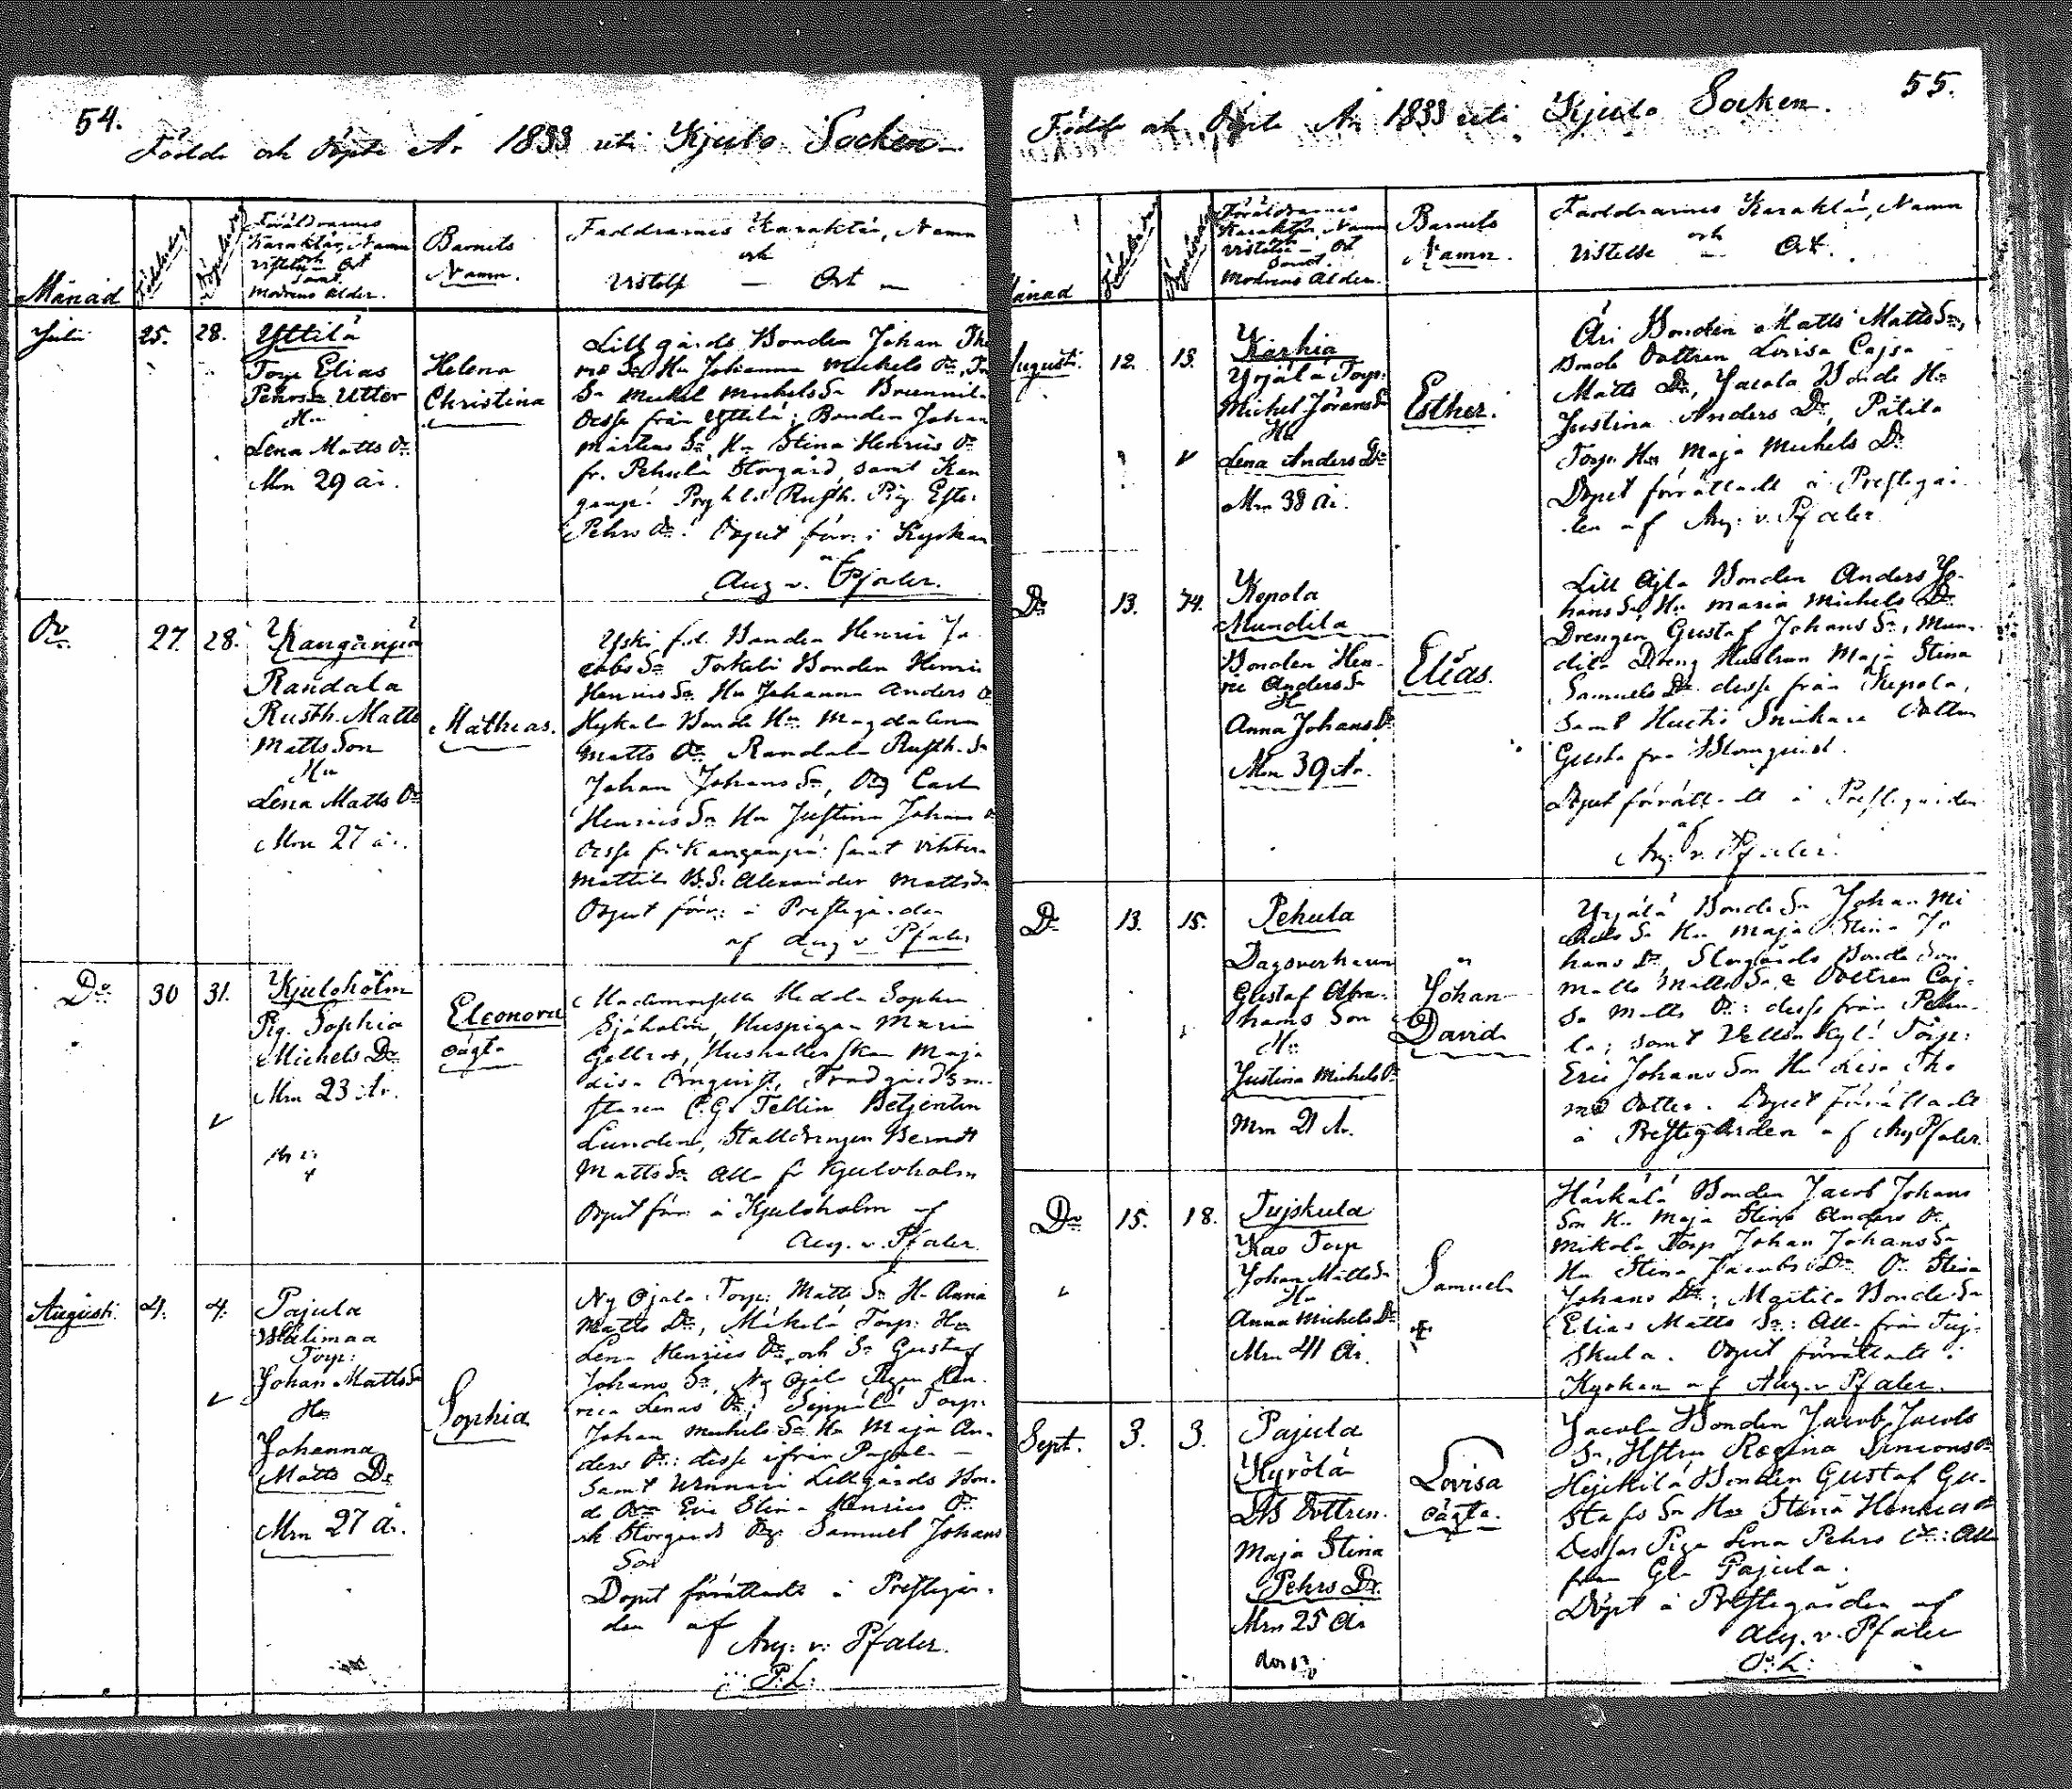 54.
Födde och Döpte År 1833 uti Kjulo Socken
Månad
Födelsedag
Döpelsedag
Föräldrarnes
Karaktär, Namn
och
Vistelse - Ort
samt
Modrens ålder.
Barnets
Namn.
Faddrarnes Karaktär, Namn
och
Vistelse — Ort —
Julii
25.
28.
Yttilä
Torp Elias
Pehrs Sn Utter
Hu
Lena Matts Dr
Mn 29 år.
Helena
Christina
Lillgårds Bonden Johan Tho
mæ Sn Hu Johanna Michels Dr,
Sn Mickel Michels Sn Brunnila
desse från Yttilä; Bonden Johan
Mårtens Sn, Hu Stina Henrics Dr
fr. Pehula Storgård, samt Kan
Rusth. Pig. Ester
Pehrs Dr. Döpet förr: i Kyrkan
Aug v. Pfaler.
Do
27.
28.
Kangånpä
Randala
Rusth. Matts
Matts Son
Hu
Lena Matts Dr
Mrn 27 år.
Mathias.
Yski Bonden Henric Ja
cobs Sn Torkebi Bonden Henric
Henrics Sn Hu Johanna Anders Dr
Hykala Bonde Hu Magdalena
Matts Dr Randala Rusth. Sn
Johan Johans Sn, Drg Carl
Henrics Sn Hu Justina Johans Dr
desse fr Kangånpä: samt
Mattila B.S. Alexander Matts Sn
Döpet förr: i Prestgården
af Aug v Pfaler
Do
30
31.
Kjuloholm
Pig. Sophia
Michels Dr
Mrn 23 År.
Eleonora
oägta
Mademoiselle Hedda Sophia
Sjöholm, Huspigan Maria
Hushållerskan Maja
Trädgårdsm.
staren C.G. Tellin Betjenten
Lunden, Stalldrengen Berndt
Matts Sn Alla fr Kjuloholm
Döpet förr å Kjuloholm af
Aug. v. Pfaler
Augusti.
4.
4.
Pajula
Wälimaa
Torp:
Johan Matts Sn
Hu
Johanna
Matts Dr
Mrn 27 år.
Sophia
Ny Ojala Torp: Matts Sn Hu Anna
Matts Dr, Mikelä Torp: Hu
Lena Henrics Dr, och Sn Gustaf
Johans Sn, Ny Ojala Pigan Hen.
rica Lenas Dr; Seppälä Torp:
Johan Michels Sn Hu Maja An.
ders Dr: desse ifrån Pajula —
Samt Unnari Lillgårds Bon.
de Drn Eva Stina Henrics Dr
ok Storgårds Drg: Samuel Johans
Son
Döpet förrättadt i Prestgår.
den af
Aug: v: Pfaler.
P.L:
55.
Födde och Döpte År 1833 uti Kjulo Socken.
Månad
Födelsedag
Döpelsedag
Föräldrarnes
Karaktär, Namn
och
Vistelse - Ort
samt
Modrens ålder.
Barnets
Namn.
Faddrarnes Karaktär, Namn
och
Vistelse — Ort.
Augusti.
12.
13.
Karhia
Yrjälä Torp:
Michel Jörans Sn
Hu
Lena Anders Dr
Mrn 38 år.
Esther.
Äri Bonden Matts Matts Sn,
Bonde Dottren Lovisa Cajsa
Matts Dr, Jacala Bonde Hu
Justina Anders Dr, Pätilä
Torp: Hu Maja Michels Dr
Döpet förrättadt i Prestgår
den af Aug: v. Pfaler.
Do
13.
14.
Kepola
Mundila
Bonden Hen-
ric Anders Sn
Hu
Anna Johans Dr
Mrn 39 År.
Elias.
Lill Äjla Bonden Anders Jo-
hans Sn, Hu Maria Michels Dr
Drengen Gustaf Johans Sn, Mun-
dila Dreng Hustrun Maja Stina
Samuels Dr desse från Kepola,
samt Huctis Snickare Dottren
Gusta fva Blomquist.
Döpet förrättadt i Prestgården
Aug: v. Pfaler.
Do
13.
15.
Pehula
Dagsverkaren
Gustaf Abra-
hams Son
Hu
Justina Michels Dr
Mrn 21 År.
Johan
David
Yrjälä Bonde Sn Johan Mi
chels Sn Hu Maja Stina Jo
hans Dr, Storgårds Bonde Son
Matts Matts Sn & Dottren Caj.
sa Matts Dr: desse från Pehu-
la; samt Torp:
Eric Johans Son Hu Lisa Tho
mæ Dotter. Döpet förrättadt
å Prestgården af Aug Pfaler.
Do
15.
18.
Tujskula
Kao Torp
Johan Matts Sn
Hu
Anna Michels Dr
Mrn 41 År.
Samuel
Härkälä Bonden Jacob Johans
Son Hu Maja Stina Anders Dr,
Mikola Torp Johan Johans Sn
Hu Stina Jacobs Dr Dr Stina
Johans Dr; Mattila Bonde Sn
Elias Matts Sn: Alla från Tuj-
skula. Döpet förrättadt i
Kyrkan af Aug. v Pfaler.
Sept.
3.
3.
Pajula
Kyrölä
Dottren
Maja Stina
Pehrs Dr.
Mrn 25 År
Lovisa
oägta.
Jacola Bonden Jacob Jacobs
Sn, Hstru Regina Simons Dr
Heikkilä Bonden Gustaf Gu-
stafs Sn Hu Stina Henrics Dr
Desses Piga Lena Pehrs Dr: Alla
från Gl. Pajula.
Döpt å Prestgården af
Aug. v. Pfaler
P.L: